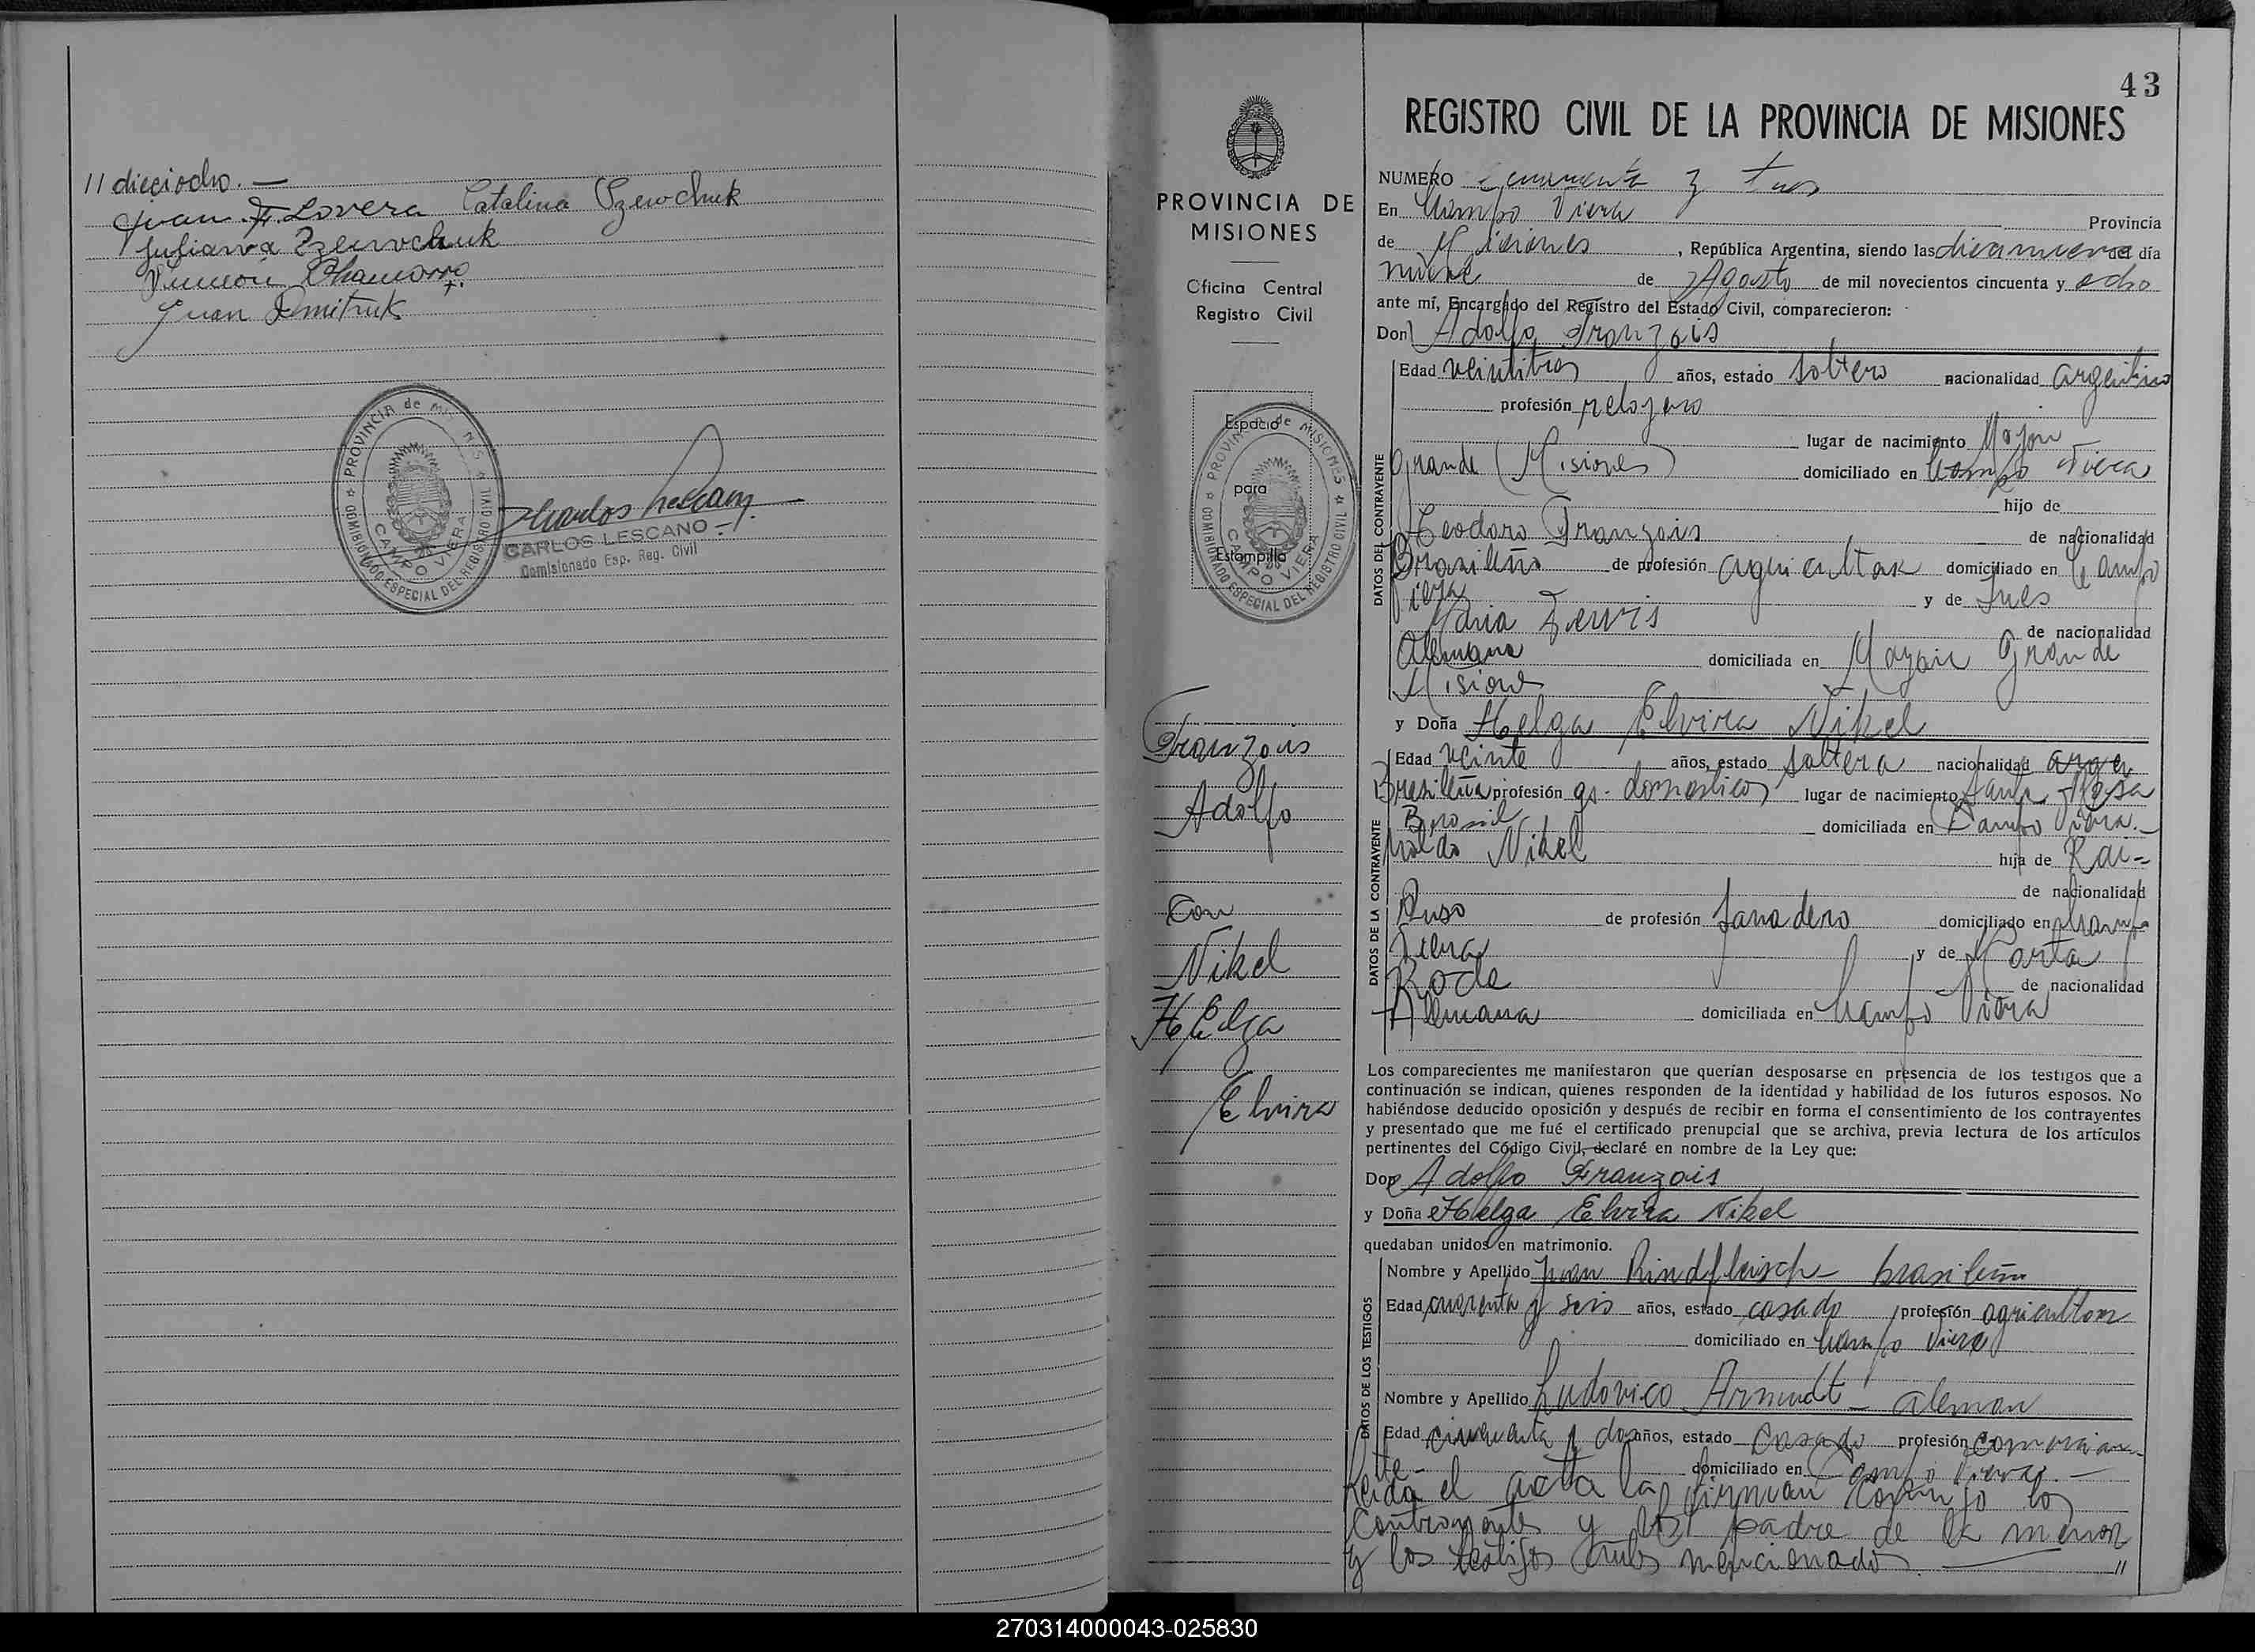 // dieciocho. —
Juan F. Lovera Catalina Ozewchuk
Juliana Ozewchuk
Chamorro
Juan Dmitruk
PROVINCIA de MISIONES
CAMPO VIERA
COMISIONADO ESPECIAL DEL REGISTRO CIVIL
CARLOS LESCANO
Comisionado Esp. Reg. Civil
PROVINCIA DE
MISIONES
Oficina Central
Registro Civil
Espacio
para
Estampilla
PROVINCIA de MISIONES
CAMPO VIERA
COMISIONADO ESPECIAL DEL REGISTRO CIVIL
Franzois
Adolfo
Con
Nikel
Helga
Elvira
43
REGISTRO CIVIL DE LA PROVINCIA DE MISIONES
NUMERO Cuarenta y tres
En Campo Viera Provincia
de Misiones, República Argentina, siendo las diecinueve del día
nueve de Agosto de mil novecientos cincuenta y ocho
ante mí, Encargado del Registro del Estado Civil, comparecieron:
Don Adolfo Franzois
DATOS DEL CONTRAYENTE
Edad veintitres años, estado soltero nacionalidad argentino
profesión relojero
lugar de nacimiento Mojon
Grande (Misiones) domiciliado en Campo Viera
hijo de
Teodoro Franzois de nacionalidad
Brasileño de profesión agricultor domiciliado en Campo
Viera y de Ines
Maria de nacionalidad
Alemana domiciliada en Mojon Grande
Misiones
y Doña Helga Elvira Nikel
DATOS DE LA CONTRAYENTE
Edad veinte años, estado soltera nacionalidad argen
Brasileña profesión qs. domesticos lugar de nacimiento Santa Rosa
Brasil domiciliada en Campo Viera.—
noldo Nikel hija de Rai=
de nacionalidad
Ruso de profesión domiciliado en Campo
Viera y de Marta
Rode de nacionalidad
Alemana domiciliada en Campo Viera
Los comparecientes me manifestaron que querían desposarse en presencia de los testigos que a
continuación se indican, quienes responden de la identidad y habilidad de los futuros esposos. No
habiéndose deducido oposición y después de recibir en forma el consentimiento de los contrayentes
y presentado que me fué el certificado prenupcial que se archiva, previa lectura de los artículos
pertinentes del Código Civil, declaré en nombre de la Ley que:
Don Adolfo Franzois
y Doña Helga Elvira Nikel
quedaban unidos en matrimonio.
DATOS DE LOS TESTIGOS
Nombre y Apellido Juan Rindfleisch - brasileño
Edad cuarenta y seis años, estado casado profesión agricultor
domiciliado en Campo Viera
Nombre y Apellido Ludovico Arnudt - aleman
Edad cincuenta y dos años, estado casado profesión comercian
te - domiciliado en Campo Viera. —
Leida el acta la firman conmigo los
contrayentes y el padre de la menor
y los testigos antes mencionados. — //
270314000043-025830